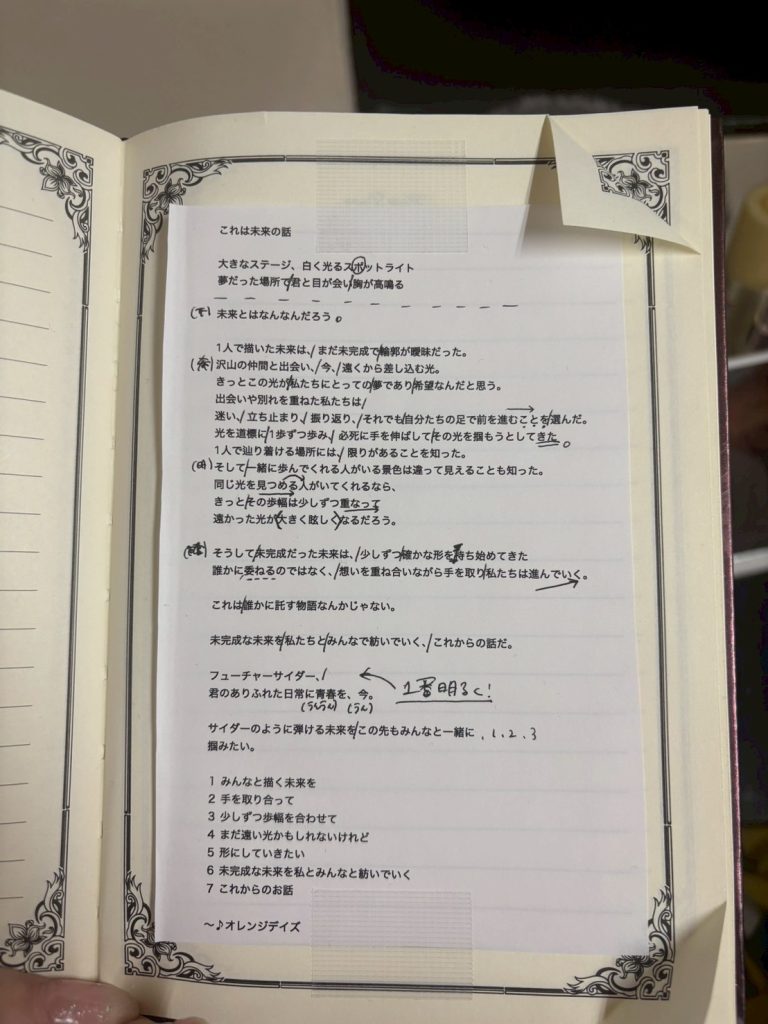 これは未来の話
大きなステージ、白く光るスポットライト
夢だった場所で君と目が会い胸が高鳴る
未来とはなんなんだろう。
1人で描いた未来は、まだ未完成で輪郭が曖昧だった。
沢山の仲間と出会い、今、遠くから差し込む光。
きっとこの光が私たちにとっての夢であり希望なんだと思う。
出会いや別れを重ねた私たちは
迷い、立ち止まり、振り返り、それでも自分たちの足で前を進むことを選んだ。
光を道標に1歩ずつ歩み、必死に手を伸ばしてその光を掴もうとしてきた。
1人で辿り着ける場所には、限りがあることを知った。
そして一緒に歩んでくれる人がいる景色は違って見えることも知った。
同じ光を見つめる人がいてくれるなら、
きっとその歩幅は少しずつ重なって
遠かった光が大きく眩しくなるだろう。
そうして未完成だった未来は、少しずつ確かな形を持ち始めてきた
誰かに委ねるのではなく、想いを重ね合いながら手を取り私たちは進んでいく。
これは誰かに託す物語なんかじゃない。
未完成な未来を私たちとみんなで紡いでいく、これからの話だ。
フューチャーサイダー、
君のありふれた日常に青春を、今。 1番明るく!
サイダーのように弾ける未来をこの先もみんなと一緒に 、1、2、3
掴みたい。
1 みんなと描く未来を
2 手を取り合って
3 少しずつ歩幅を合わせて
4 まだ遠い光かもしれないけれど
5 形にしていきたい
6 未完成な未来を私とみんなと紡いでいく
7 これからのお話
～♪オレンジデイズ